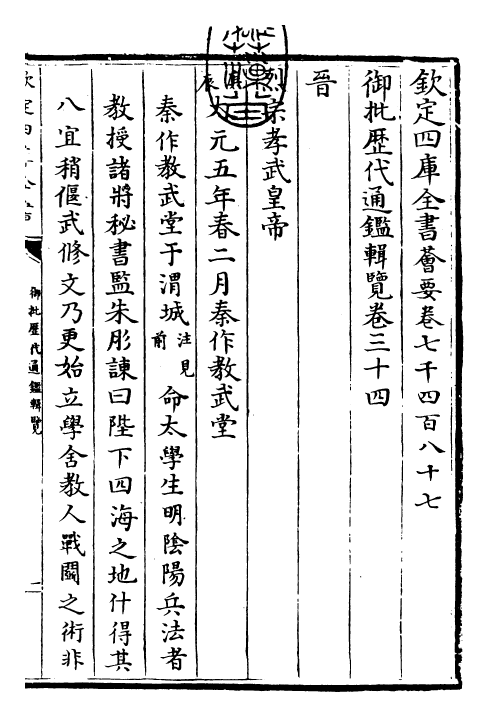 欽定四庫全書薈要卷七千四百八十七
御批歴代通鑑輯覽卷三十四
晉
烈宗孝武皇帝
庚辰太元五年春二月秦作教武堂
秦作教武堂于渭城注見前命太學生明陰陽兵法者
教授諸將秘書監朱肜諫曰陛下四海之地什得其
八宜稍偃武修文乃更始立學舍教人戰鬭之術非
御批歷代通鑑輯覽